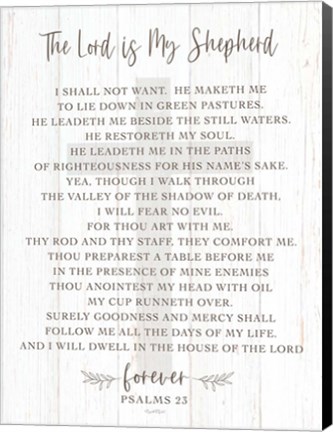 The Lord is My Shepherd
I SHALL NOT WANT. HE MAKETH ME
TO LIE DOWN IN GREEN PASTURES.
HE LEADETH ME BESIDE THE STILL WATERS.
HE RESTORETH MY SOUL.
HE LEADETH ME IN THE PATHS
OF RIGHTEOUSNESS FOR HIS NAME'S SAKE.
YEA, THOUGH I WALK THROUGH
THE VALLEY OF THE SHADOW OF DEATH,
I WILL FEAR NO EVIL.
FOR THOU ART WITH ME.
THY ROD AND THY STAFF, THEY COMFORT ME.
THOU PREPAREST A TABLE BEFORE ME
IN THE PRESENCE OF MINE ENEMIES
THOU ANOINTEST MY HEAD WITH OIL
MY CUP RUNNETH OVER.
SURELY GOODNESS AND MERCY SHALL
FOLLOW ME ALL THE DAYS OF MY LIFE.
AND I WILL DWELL IN THE HOUSE OF THE LORD
forever
PSALMS 23